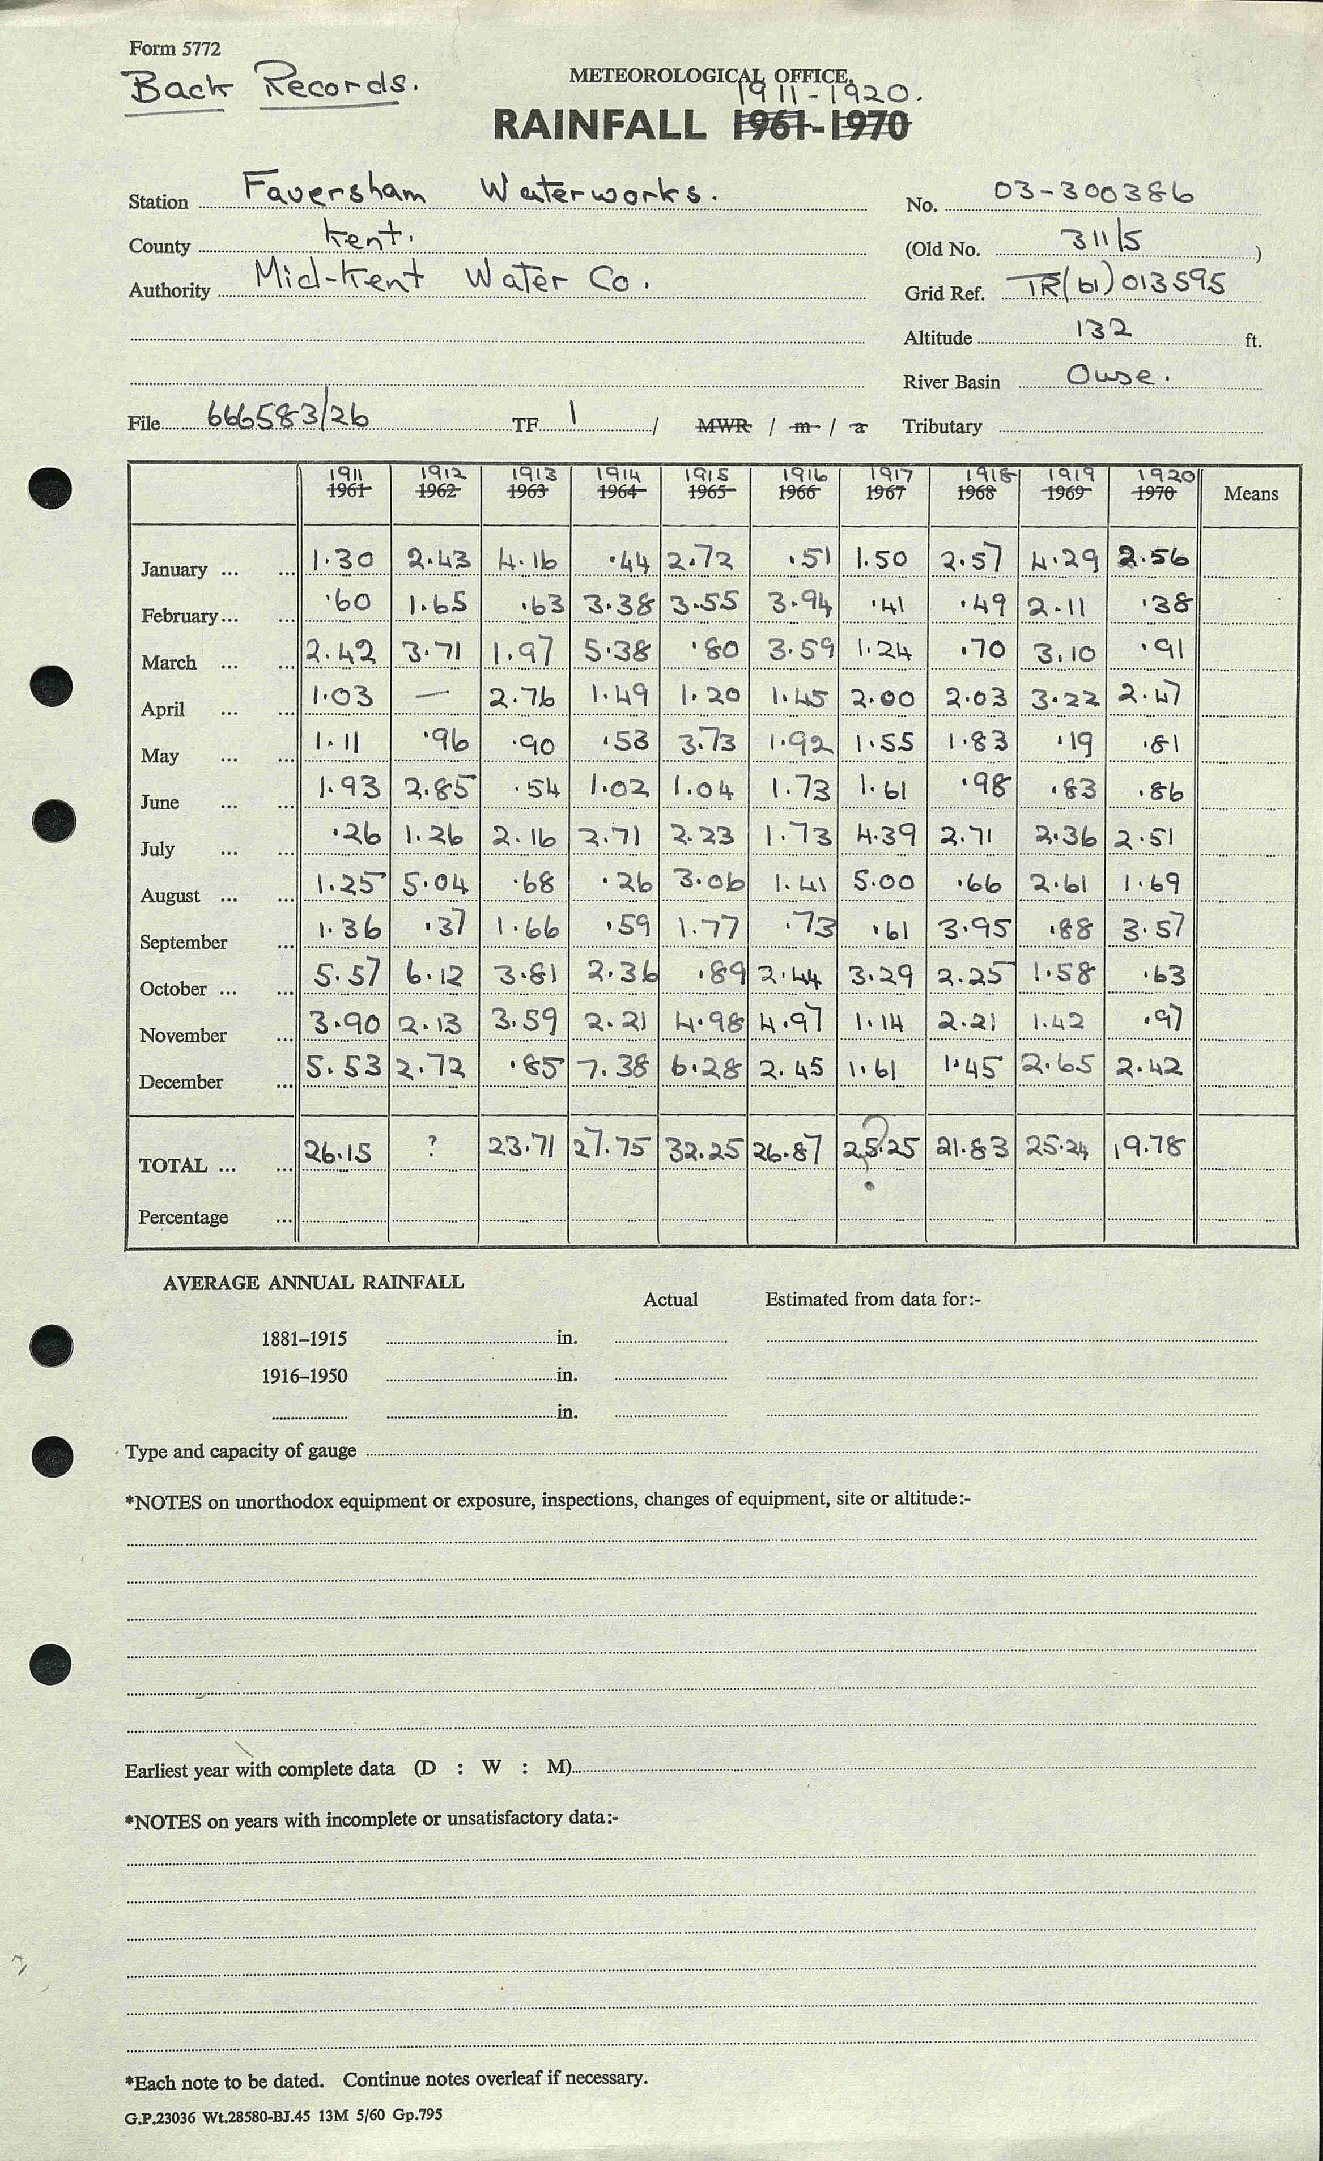 Form 5772
Back Records.
METEOROLOGICAL OFFICE
1911-1920.
RAINFALL 1961-1970
Station Faversham Waterworks.
No. 03-300386
County Kent.
(Old No. 311/5 )
Authority Mid-Kent Water Co.
Grid Ref. TR(61)013595
Altitude 132 ft.
River Basin Ouse.
File 666583/26 TF 1 / MWR / m / a Tributary
1911 1912 1913 1914 1915 1916 1917 1918 1919 1920
1961 1962 1963 1964 1965 1966 1967 1968 1969 1970 Means
January ... ... 1.30 2.43 4.16 .44 2.72 .51 1.50 2.57 4.29 2.56
February ... ... .60 1.65 .63 3.38 3.55 3.94 .41 .49 2.11 .38
March ... ... 2.42 3.71 1.97 5.38 .80 3.59 1.24 .70 3.10 .91
April ... ... 1.03 — 2.76 1.49 1.20 1.45 2.00 2.03 3.22 2.47
May ... ... 1.11 .96 .90 .53 3.73 1.92 1.55 1.83 .19 .81
June ... ... 1.93 2.85 .54 1.02 1.04 1.73 1.61 .98 .83 .86
July ... ... .26 1.26 2.16 2.71 2.23 1.73 4.39 2.71 2.36 2.51
August ... ... 1.25 5.04 .68 .26 3.06 1.41 5.00 .66 2.61 1.69
September ... 1.36 .37 1.66 .59 1.77 .73 .61 3.95 .88 3.57
October ... ... 5.57 6.12 3.81 2.36 .89 2.44 3.29 2.25 1.58 .63
November ... 3.90 2.13 3.59 2.21 4.98 4.97 1.14 2.21 1.42 .97
December ... 5.53 2.72 .85 7.38 6.28 2.45 1.61 1.45 2.65 2.42
TOTAL ... ... 26.15 ? 23.71 27.75 32.25 26.87 25.25 ? 21.83 25.24 19.78
Percentage ...
AVERAGE ANNUAL RAINFALL
Actual Estimated from data for:-
1881–1915 in.
1916–1950 in.
in.
Type and capacity of gauge
*NOTES on unorthodox equipment or exposure, inspections, changes of equipment, site or altitude:-
Earliest year with complete data (D : W : M)
*NOTES on years with incomplete or unsatisfactory data:-
*Each note to be dated. Continue notes overleaf if necessary.
G.P.23036 Wt.28580-BJ.45 13M 5/60 Gp.795